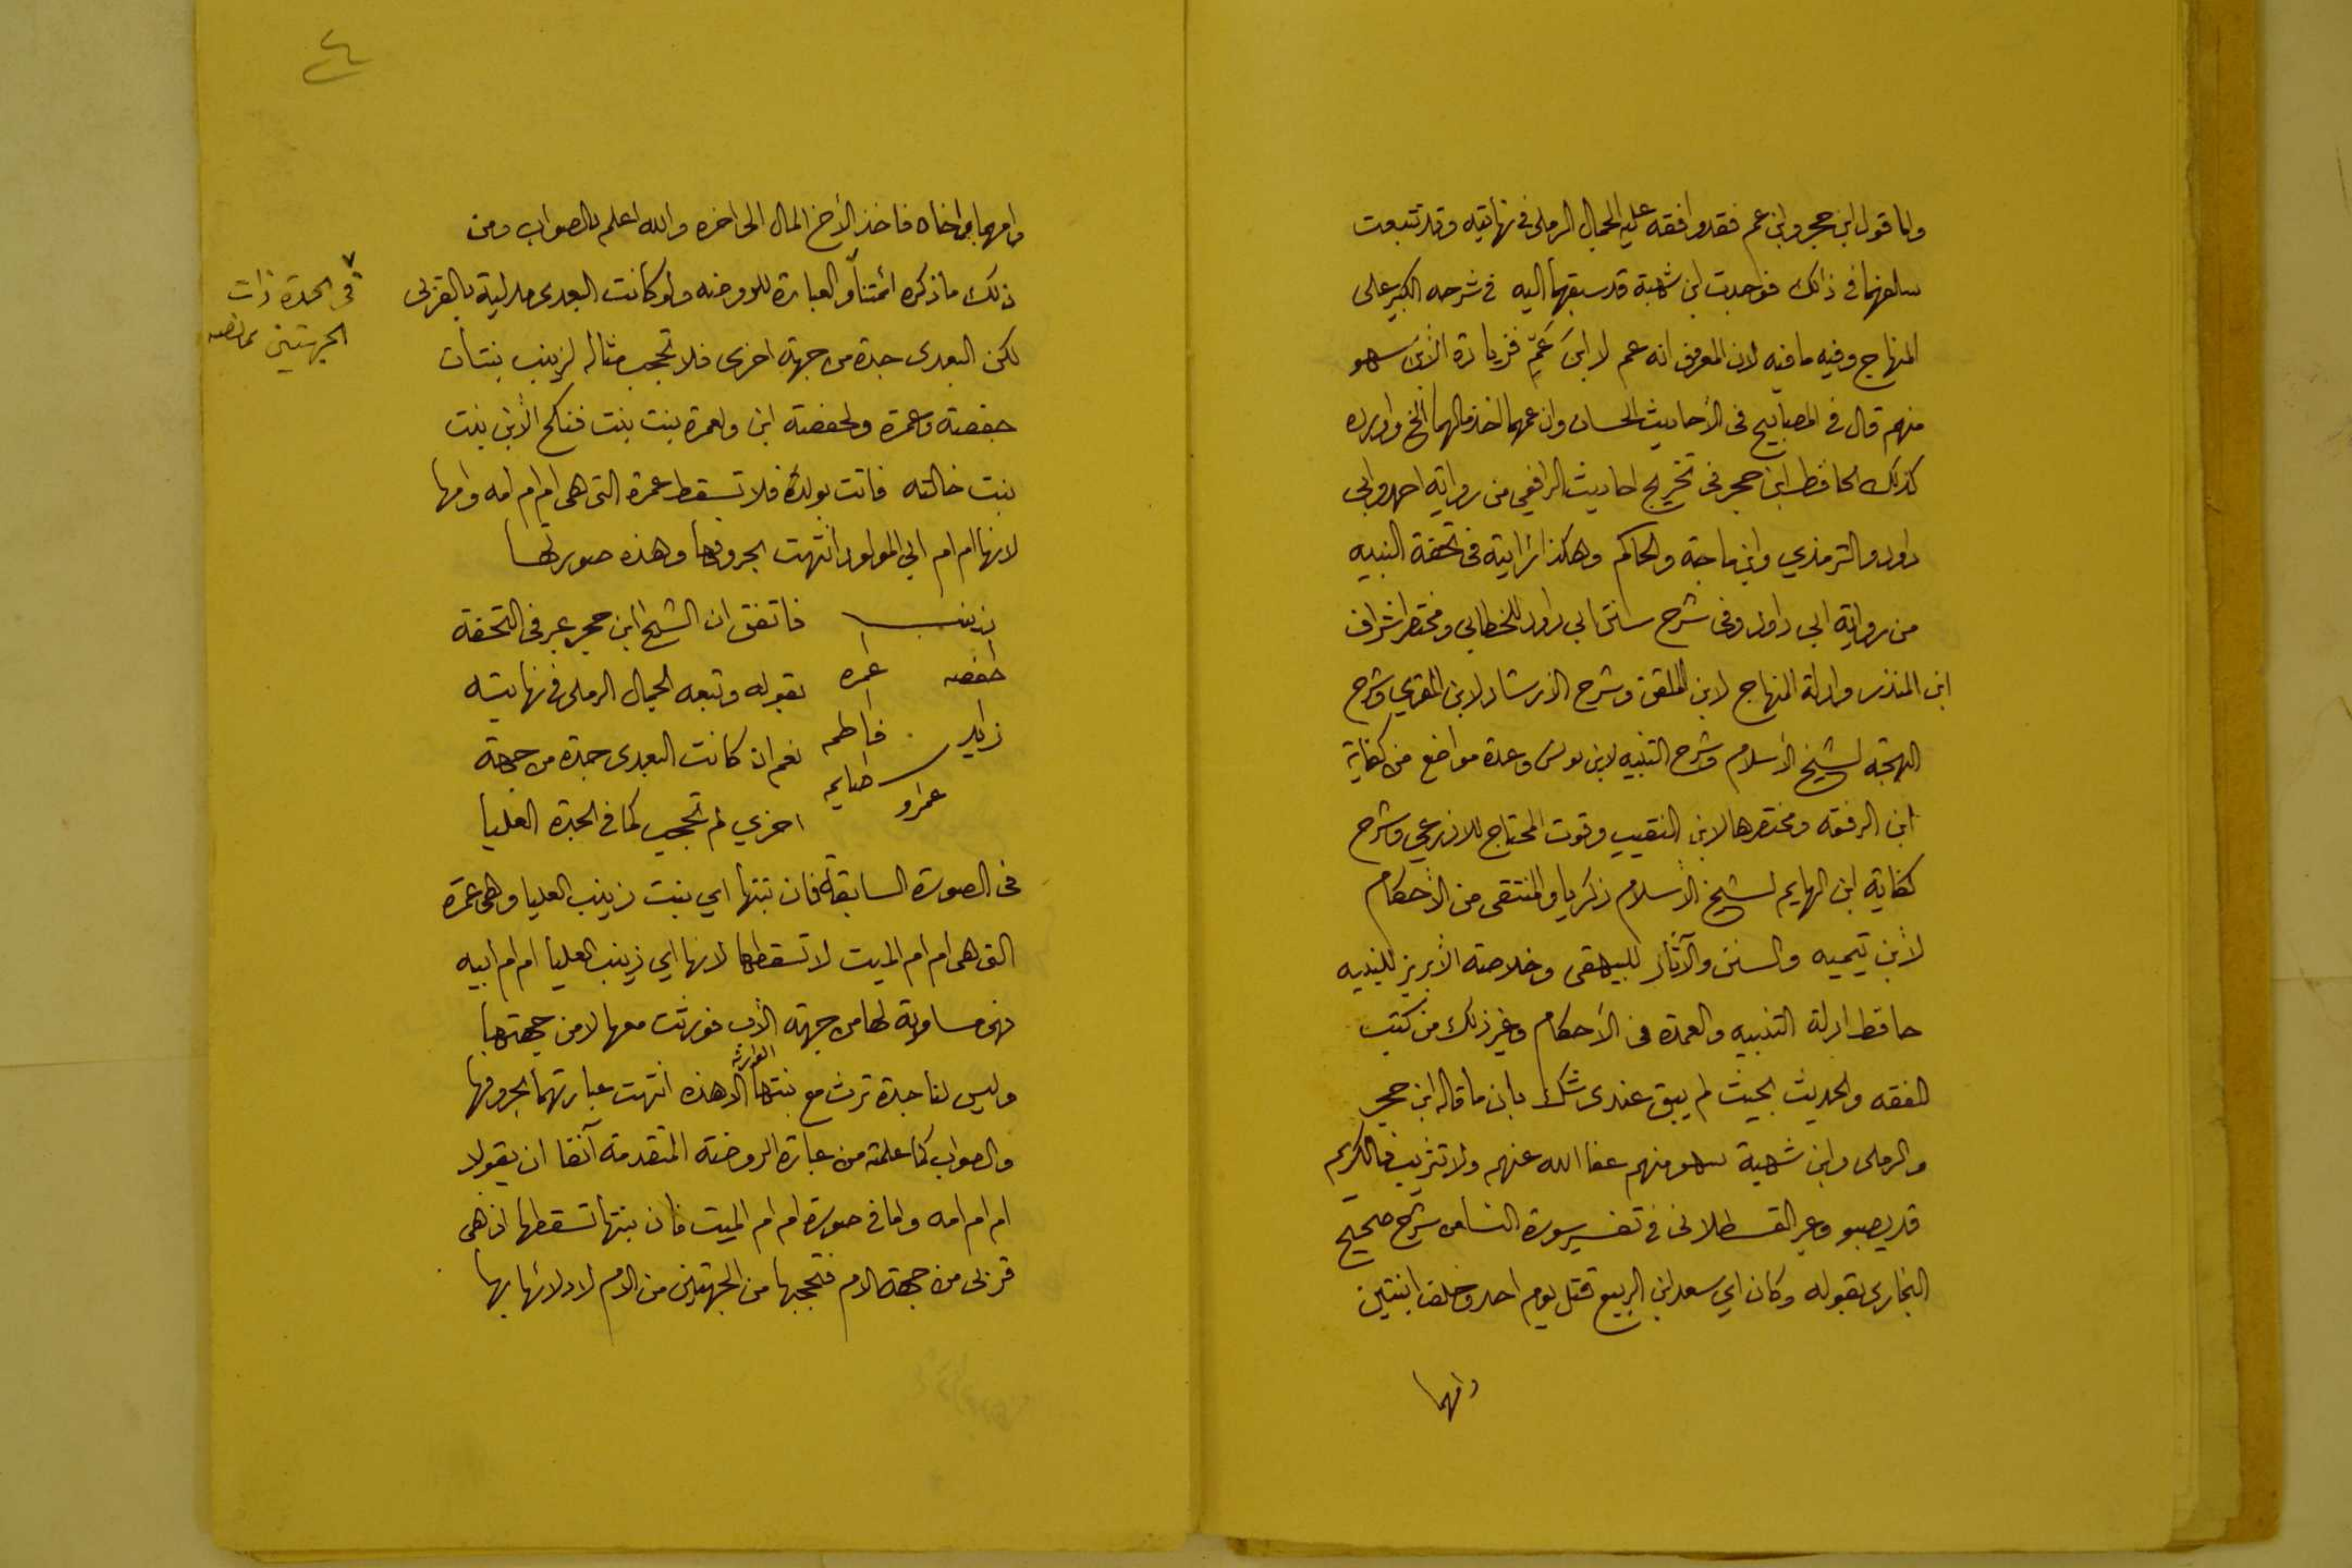 واما قول ابن حجر وابن عم فقد وافقه عليه الجمال الرملي في نهايته وقد تتبعت
سلفهما في ذلك فوجدت ابن شهبة قد سبقهما اليه في شرحه الكبير على
المنهاج وفيه ما فيه لان المعروف انه عم لا ابن عَمٍّ فزيادة الابن سهو
منهم قال في المصابيح في الأحاديث الحسان وان عمهما اخذ مالهما الخ واورده
كذلك الحافظ ابن حجر في تخريج احاديث الرافعي من رواية احمد وابي
داود والترمذي وابن ماجة والحاكم وهكذا رايته في تحفة النبيه
من رواية ابي داود وفي شرح سنن ابي داود للخطابي ومختصر اشراف
ابن المنذر وادلة المنهاج لابن الملقن وشرح الارشاد لابن المقري وشرح
البهجة لشيخ الأسلام وشرح التنبيه لابن يونس وعدة مواضع من كفاية
ابن الرفعة ومختصرها لابن النقيب وقوت المحتاج للاذرعي وشرح
كفاية ابن الهايم لشيخ الأسلام زكريا والمنتقى من الأحكام
لأبن تيميه والسنن والآثار للبيهقي وخلاصة الأبريز للنبيه
حافظ ادلة التنبيه والعمدة في الأحكام وغير ذلك من كتب
الفقه والحديث بحيث لم يبق عندى شك بان ما قاله ابن حجر
والرملى وابن شهبة سهو منهم عفا الله عنهم ولا تثريب فالكريم
قد يصبو وعبر القسطلانى في تفسير سورة النسا من شرح صحيح
البخارى بقوله وكان اي سعد ابن الربيع قتل يوم احد وخلف ابنتين
وامهما
٤
وامهما واخاه فاخذ الأخ المال الى اخره والله اعلم بالصواب ومن
ذلك ما ذكره ائمتنا والعبارة للروضه ولو كانت البعدى مدلية بالقربى
في الجدة ذات
الجهتين ما نصه
لكن البعدى جدة من جهة اخرى فلا تحجب مثاله لزينب بنتان
حفصة وعمرة ولحفصة ابن ولعمرة بنت بنت فنكح الأبن بنت
بنت خالته فاتت بولد فلا تسقط عمرة التى هى ام ام امه وامها
لانها ام ام ابي المولود انتهت بحروفها وهذه صورتها
زينب فاتفق ان الشيخ ابن حجر عبر في التحفة
حفصه عمره بقوله وتبعه الجمال الرملى في نهايته
زايد فاطمه نعم ان كانت البعدى جدة من جهة
عمرو اخري لم تحجب كما في الجدة العليا
في الصورة السابقة فان بنتها اي بنت زينب العليا وهى عمرة
التى هى ام ام الميت لا تسقطها لانها اي زينب العليا ام ام ابيه
فهى مساوية لها من جهة الأب فورثت معها لا من جهتها
وليس لنا جدة ترث مع بنتها الوارثة الا هذه انتهت عبارتهما بحروفها
والصواب كما علمته من عبارة الروضة المتقدمة آنفا ان يقولا
ام ام امه واما في صورة ام ام الميت فان بنتها تسقطها اذ هى
قربى من جهة الام فتحجبها من الجهتين من الام لادلائها بها